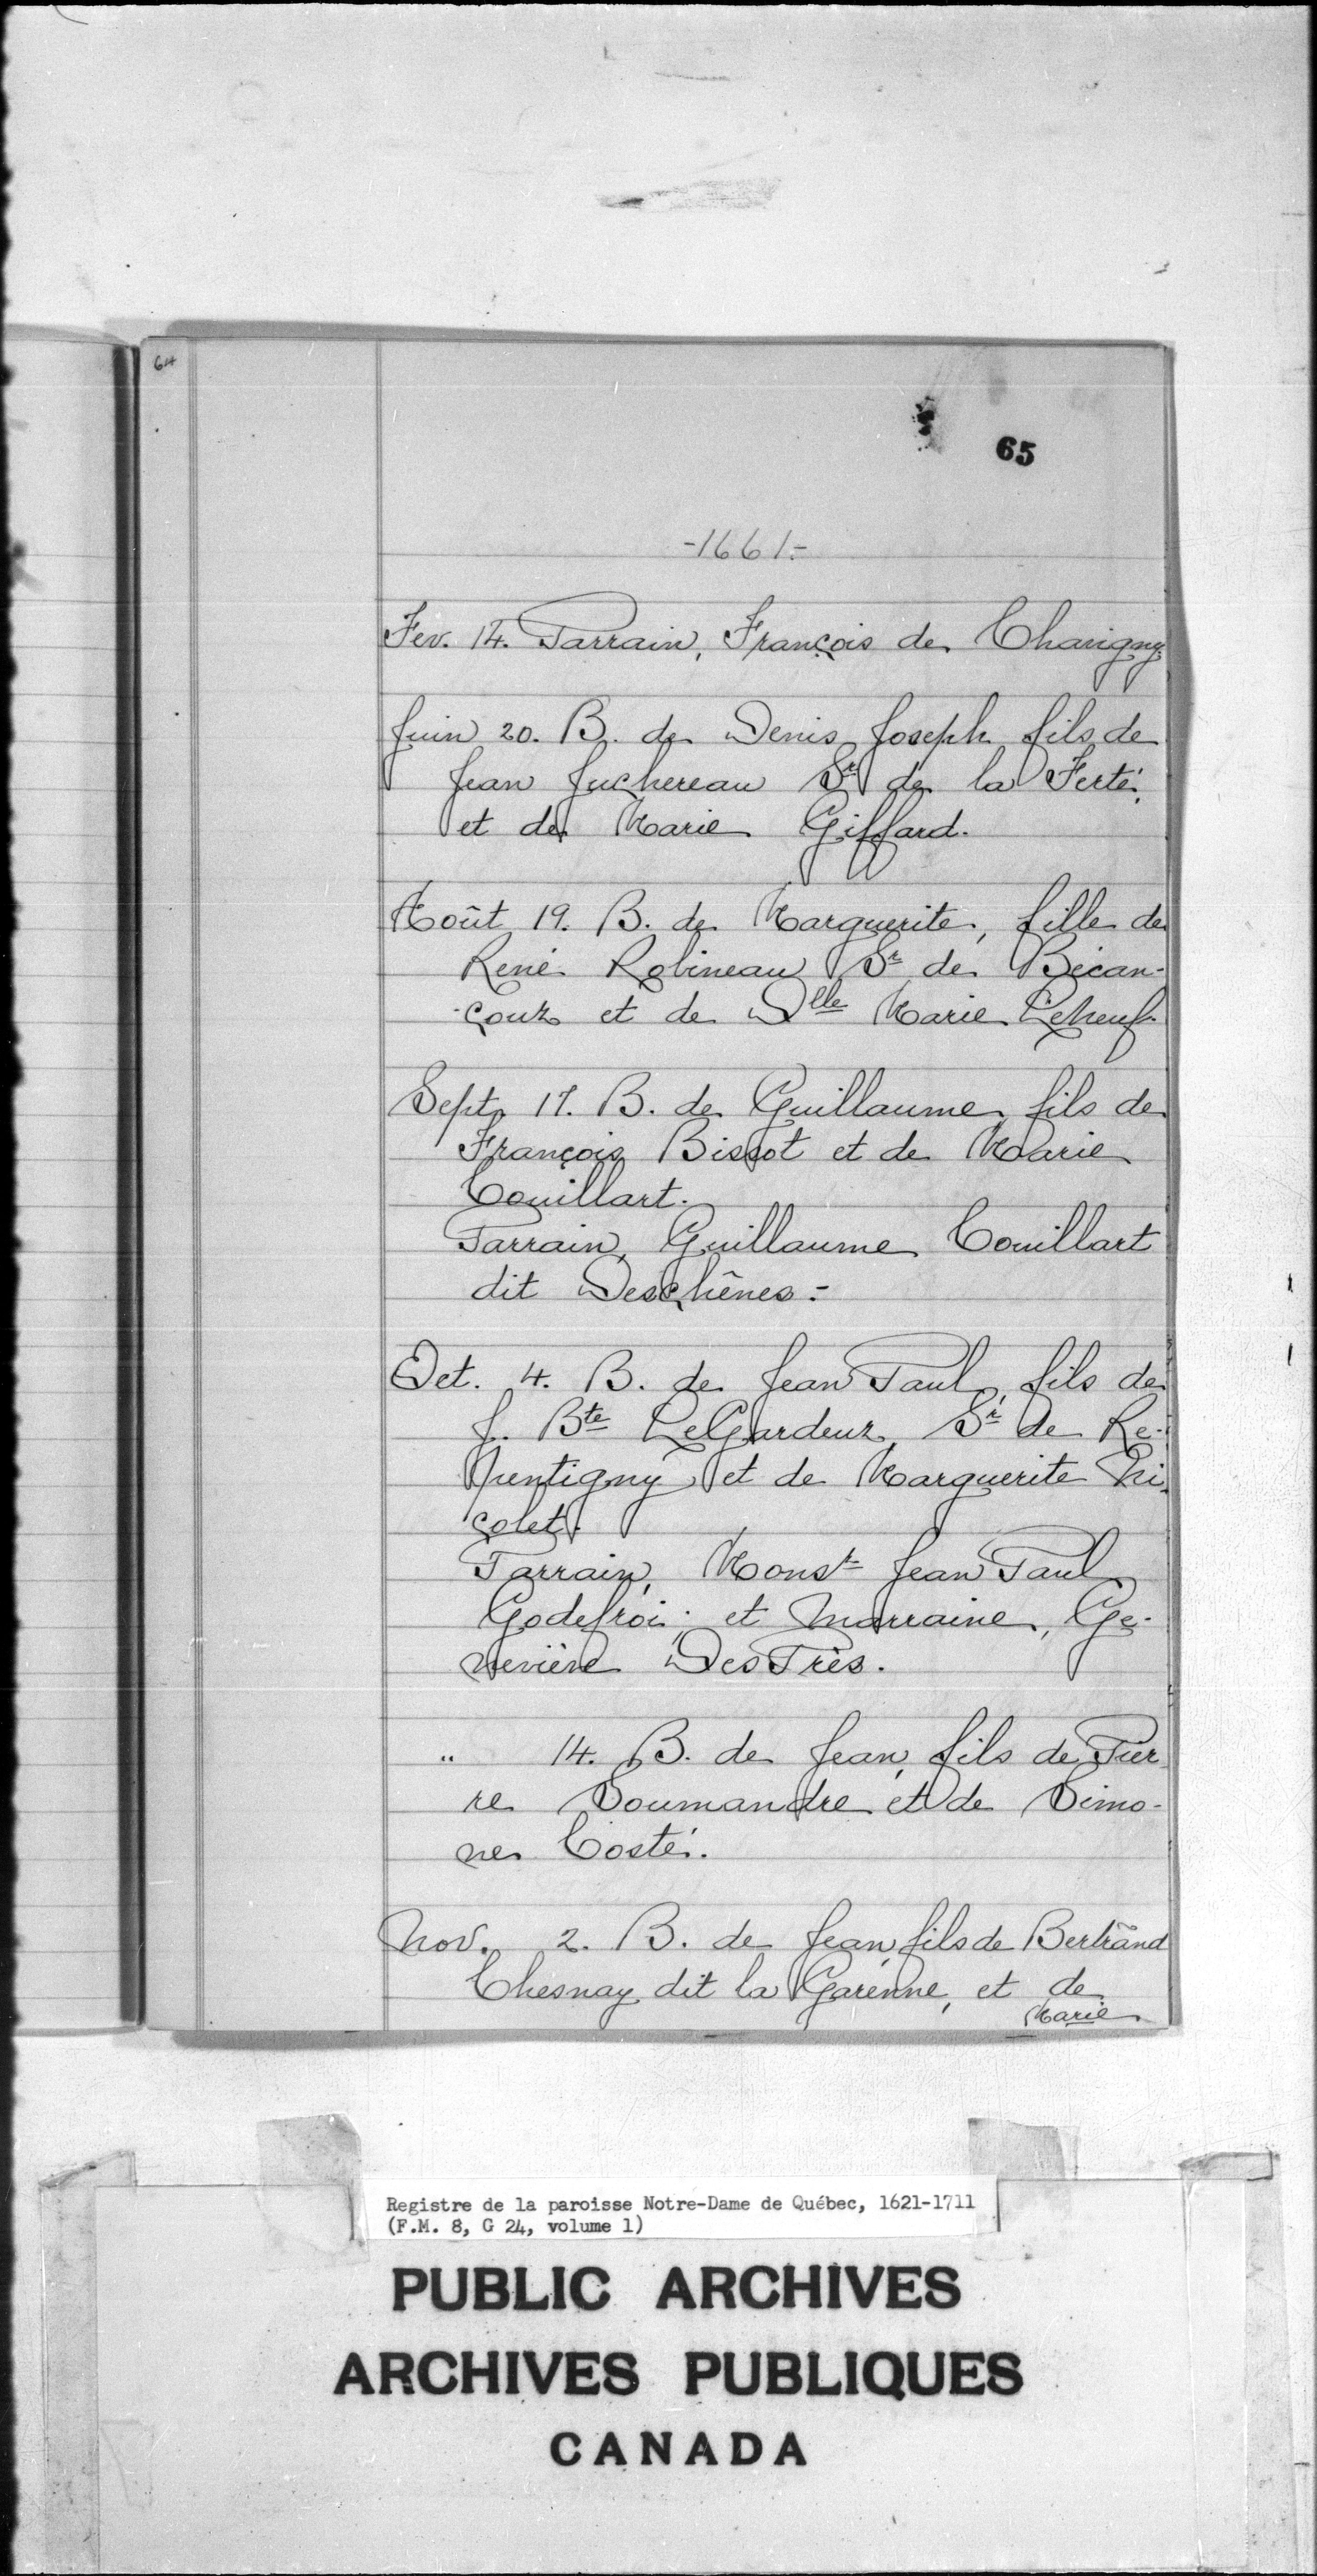 64
65
-1661.-
Fev. 14. Parrain, François de Chavigny.
Juin 20. B. de Denis Joseph fils de
Jean Juchereau Sr de la Ferté,
et de Marie Giffard.
Août 19. B. de Marguerite, fille de
René Robineau Sr de Bécan-
çour et de Dlle Marie Leneuf.
Sept. 17. B. de Guillaume, fils de
François Bissot et de Marie
Couillart.
Parrain, Guillaume Couillart
dit Deschênes.-
Oct. 4. B. de Jean Paul, fils de
J. Bte LeGardeur, Sr de Re-
pentigny et de Marguerite Ni-
colet.
Parrain, Monsr Jean Paul
Godefroi; et Marraine, Ge-
neviève DesPrès.
" 14. B. de Jean, fils de Pier
re Soumandre et de Simo-
ne Costé.
Nov. 2. B. de Jean, fils de Bertrand
Chesnay dit la Garenne, et de
Marie
Registre de la paroisse Notre-Dame de Québec, 1621-1711
(F.M. 8, G 24, volume 1)
PUBLIC ARCHIVES
ARCHIVES PUBLIQUES
CANADA